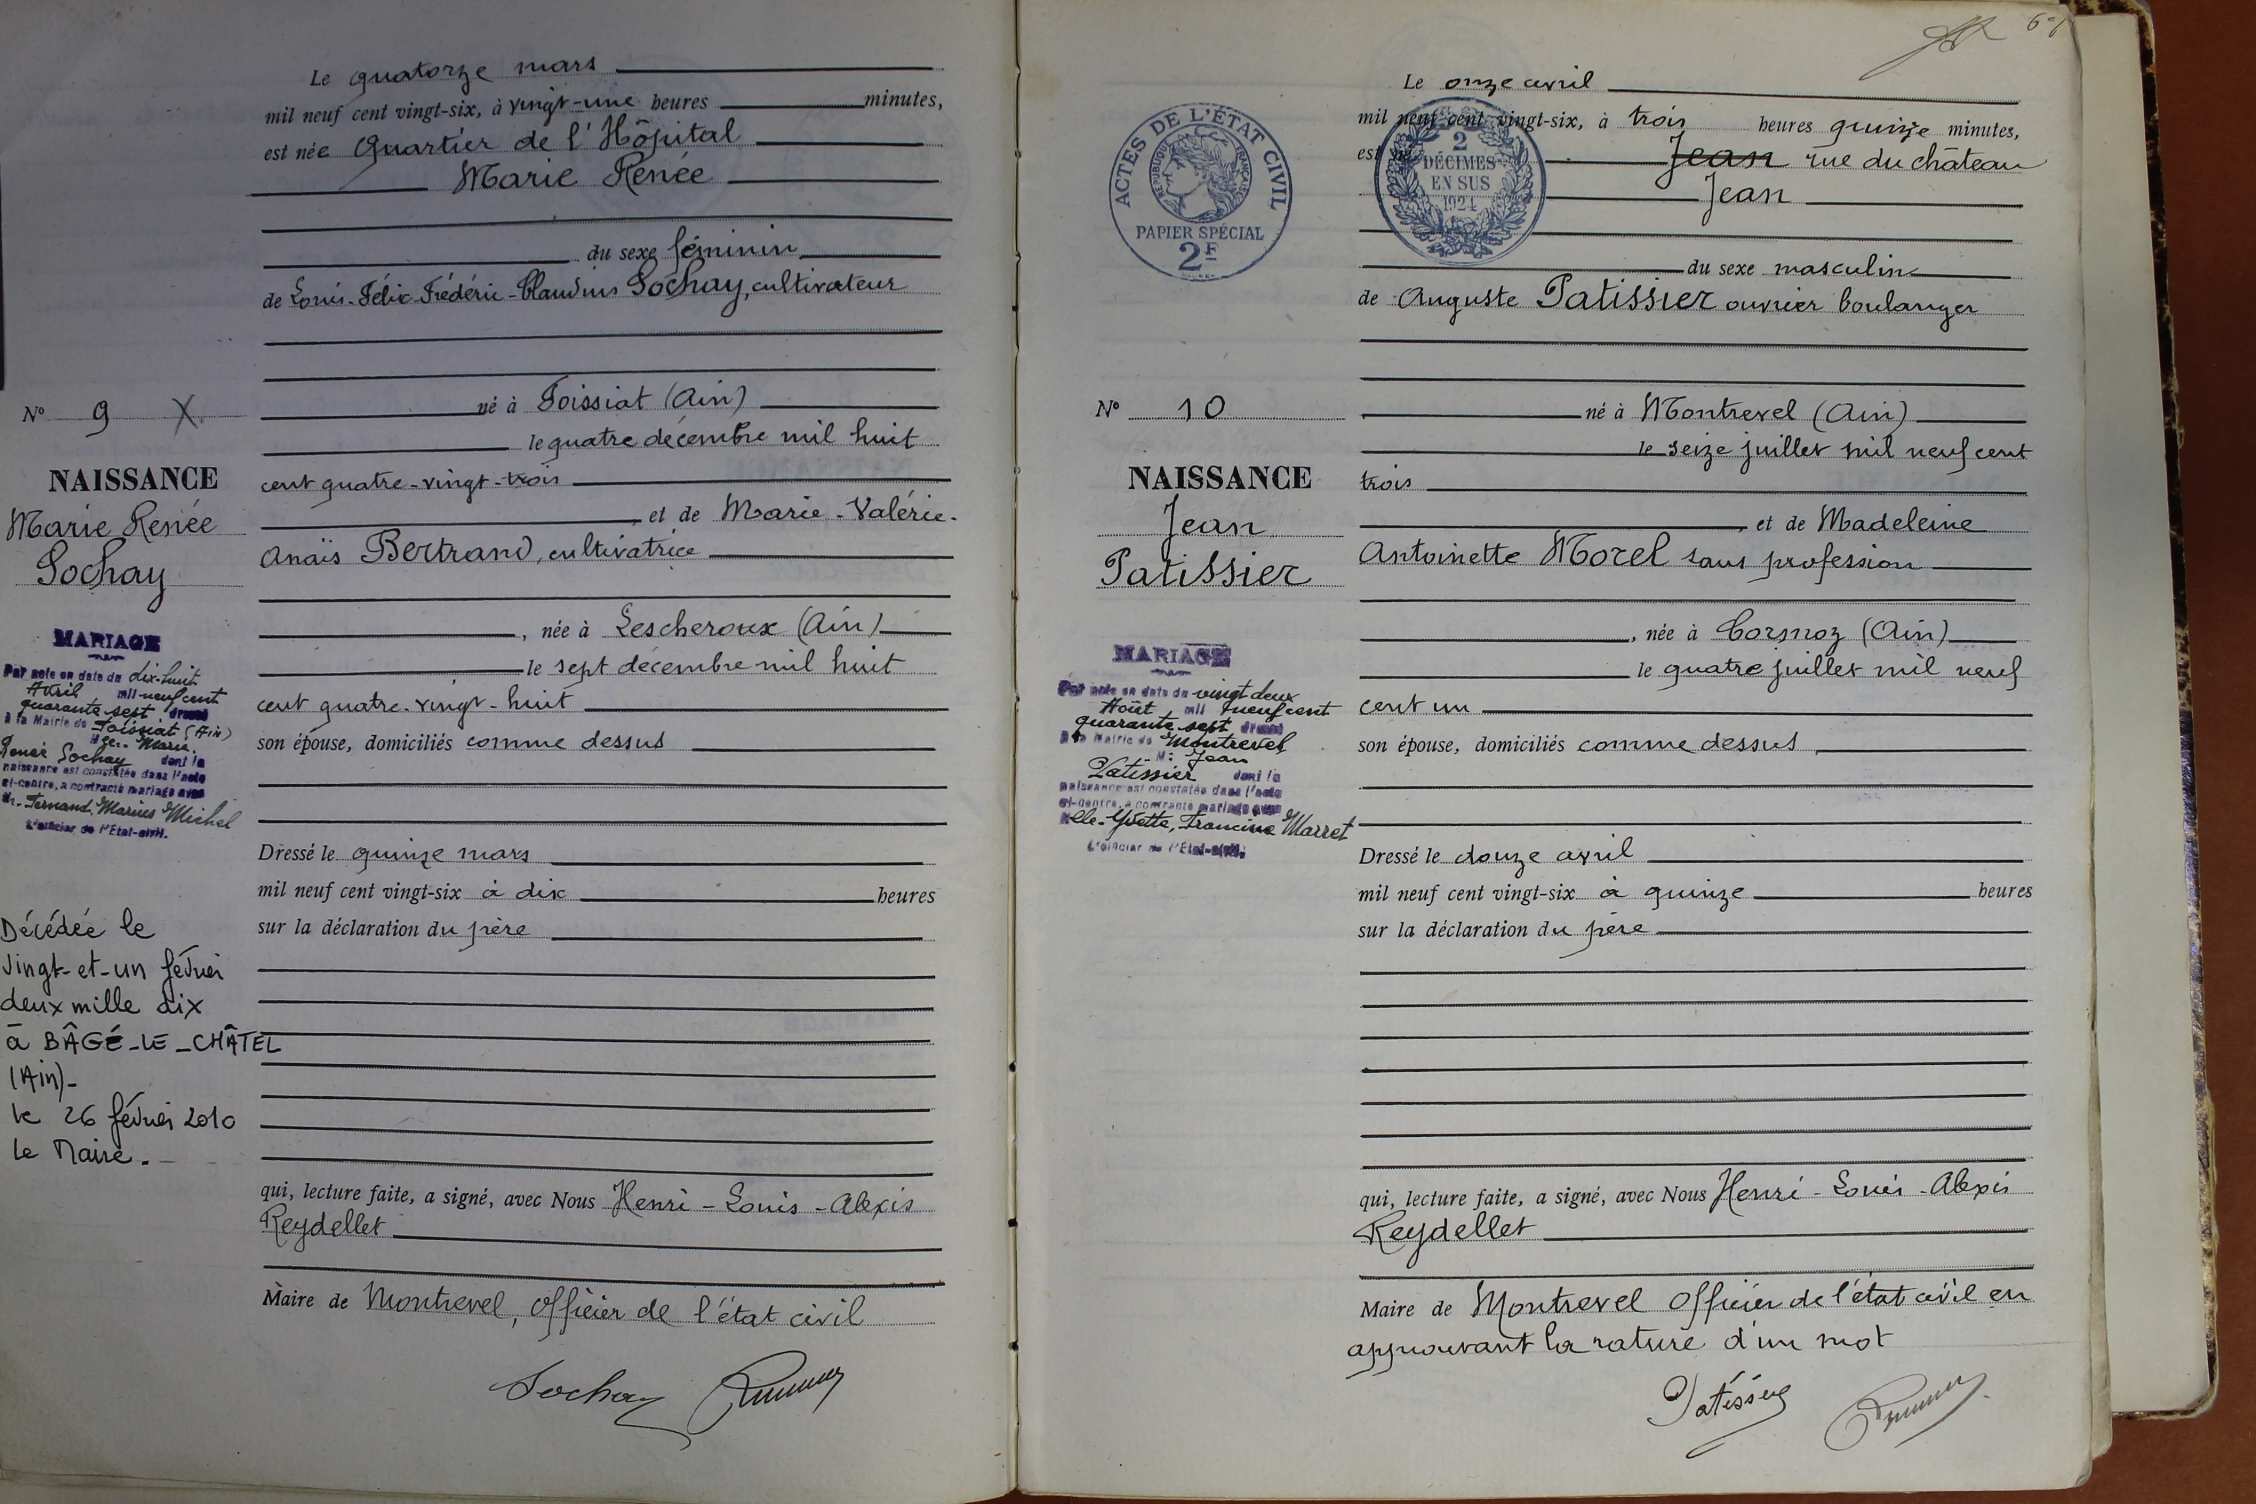 Le quatorze mars
mil neuf cent vingt-six, à vingt-une heures minutes,
est née Quartier de l'Hôpital
Marie Renée
du sexe féminin
de Louis-Félix-Frédéric-Claudius Sochay, cultivateur
né à Foissiat (Ain)
le quatre décembre mil huit
cent quatre-vingt-trois
et de Marie-Valérie-
Anaïs Bertrand, cultivatrice
, née à Lescheroux (Ain)
le sept décembre mil huit
cent quatre-vingt-huit
son épouse, domiciliés comme dessus
Dressé le quinze mars
mil neuf cent vingt-six à dix heures
sur la déclaration du père
qui, lecture faite, a signé, avec Nous Henri-Louis-Alexis
Reydellet
Maire de Montrevel, Officier de l'état civil
Sochay
N° 9 X
NAISSANCE
Marie Renée
Sochay
MARIAGE
Par acte en date du dix-huit
Avril mil neuf cent
quarante sept dressé
à la Mairie de Foissiat (Ain)
Mlle. Marie
Renée Sochay dont la
naissance est constatée dans l'acte
ci-contre, a contracté mariage avec
Mr. Fernand, Marius Michel
L'officier de l'État-civil.
Décédée le
vingt-et-un février
deux mille dix
à BÂGÉ-LE-CHÂTEL
(Ain)-
le 26 février 2010
Le Maire.
61
ACTES DE L'ÉTAT CIVIL
RÉPUBLIQUE FRANÇAISE
PAPIER SPÉCIAL
2F
2
DÉCIMES
EN SUS
1924
Le onze avril
mil neuf cent vingt-six, à trois heures quinze minutes,
est né Jean rue du château
Jean
du sexe masculin
de Auguste Patissier ouvrier boulanger
né à Montrevel (Ain)
le seize juillet mil neuf cent
trois
, et de Madeleine
Antoinette Morel sans profession
, née à Cormoz (Ain)
le quatre juillet mil neuf
cent un
son épouse, domiciliés comme dessus
Dressé le douze avril
mil neuf cent vingt-six à quinze heures
sur la déclaration du père
qui, lecture faite, a signé, avec Nous Henri-Louis-Alexis
Reydellet
Maire de Montrevel Officier de l'état civil en
approuvant la rature d'un mot
Patissier
N° 10
NAISSANCE
Jean
Patissier
MARIAGE
Par acte en date du vingt deux
Août mil neuf cent
quarante sept dressé
à la Mairie de Montrevel
M: Jean
Patissier dont la
naissance est constatée dans l'acte
ci-contre, a contracté mariage avec
Melle. Yvette, Francine Marret
L'officier de l'État-civil;